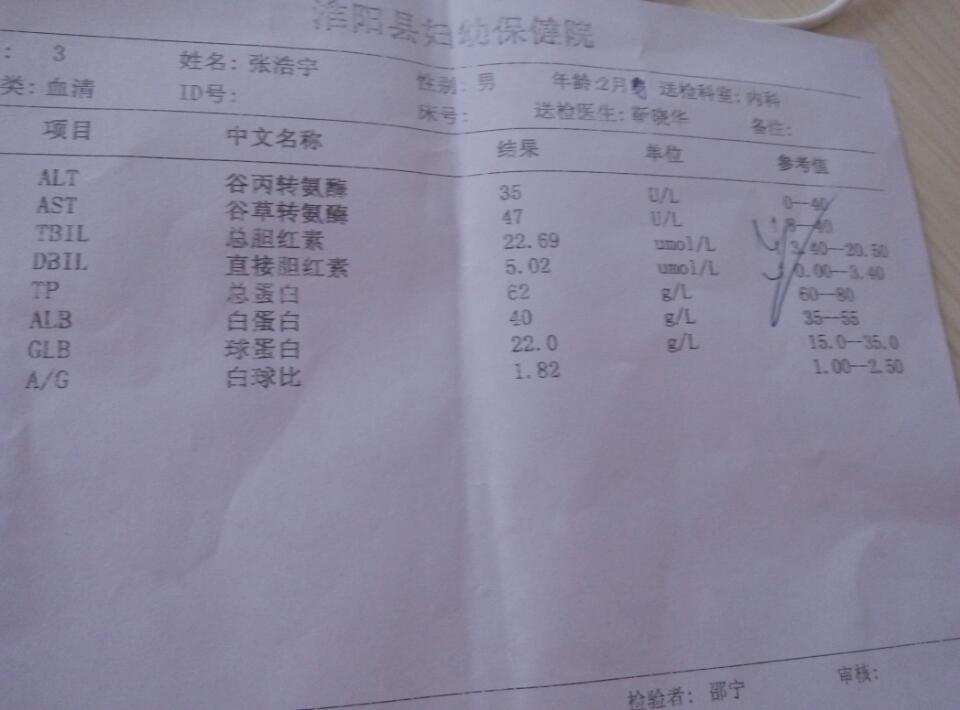 淮阳县妇幼保健院
: 3 姓名: 张浩宇 性别: 男 年龄:2月 送检科室: 内科
类: 血清 ID号: 床号: 送检医生: 靳晓华 备注:
项目 中文名称 结果 单位 参考值
ALT 谷丙转氨酶 35 U/L 0--40
AST 谷草转氨酶 47 U/L 8--40
TBIL 总胆红素 22.69 umol/L 3.40--20.50
DBIL 直接胆红素 5.02 umol/L 0.00--3.40
TP 总蛋白 62 g/L 60--80
ALB 白蛋白 40 g/L 35--55
GLB 球蛋白 22.0 g/L 15.0--35.0
A/G 白球比 1.82 1.00--2.50
检验者: 邵宁 审核: